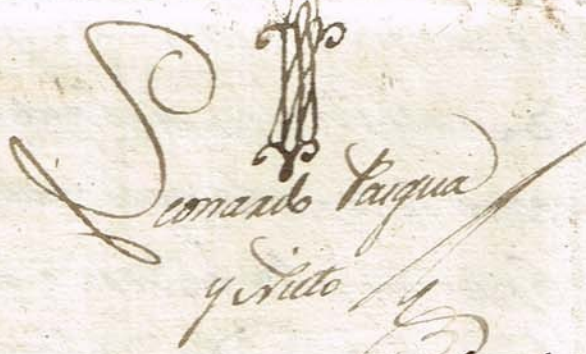 Leonardo Pasqua
y Nieto